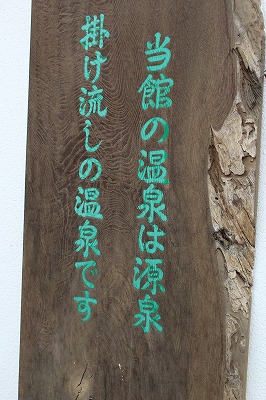 当館の温泉は源泉
掛け流しの温泉です